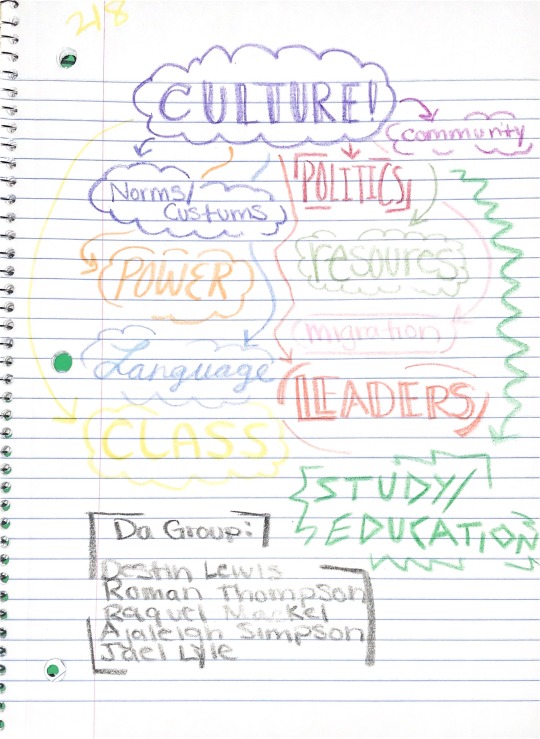 2/8
CULTURE!
community
Norms/
Custums
POLITICS
POWER
resources
migration
Language
LEADERS
CLASS
STUDY/
EDUCATION
Da Group:
Destin Lewis
Roman Thompson
Raquel Mackel
Ajaleigh Simpson
Jael Lyle